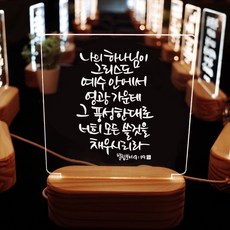 나의 하나님이
그리스도
예수 안에서
영광 가운데
그 풍성한대로
너희 모든 쓸것을
채우시리라
빌립보서 4:19